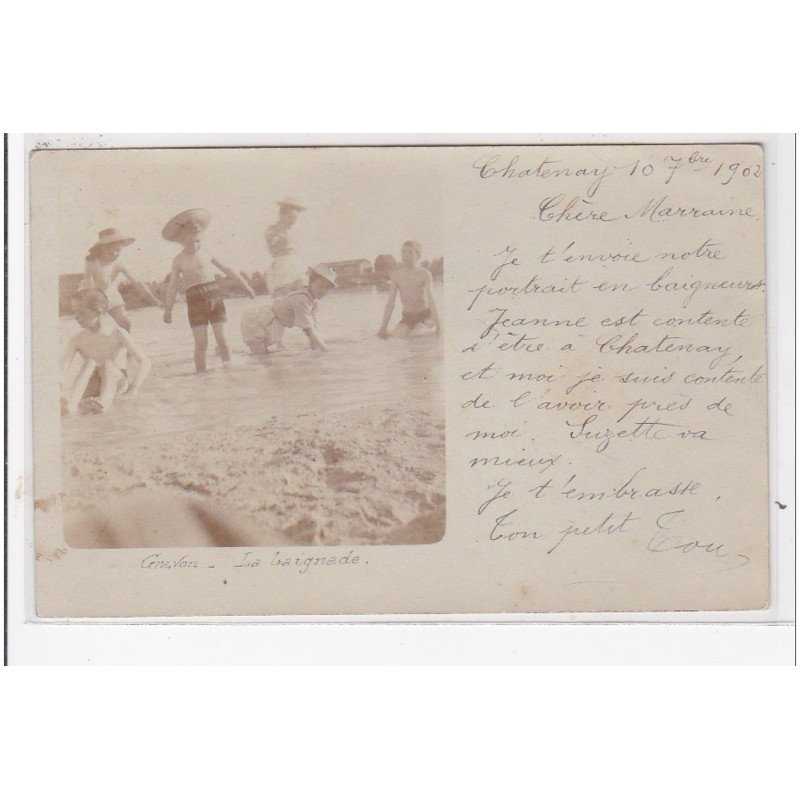 Chatenay 10 7bre 1902
Chère Marraine.
Je t'envoie notre
portrait en baigneurs.
Jeanne est contente
d'être à Chatenay
et moi je suis contente
de l'avoir près de
moi. Suzette va
mieux.
Je t'embrasse.
Ton petit Tou
Gravon - La baignade.